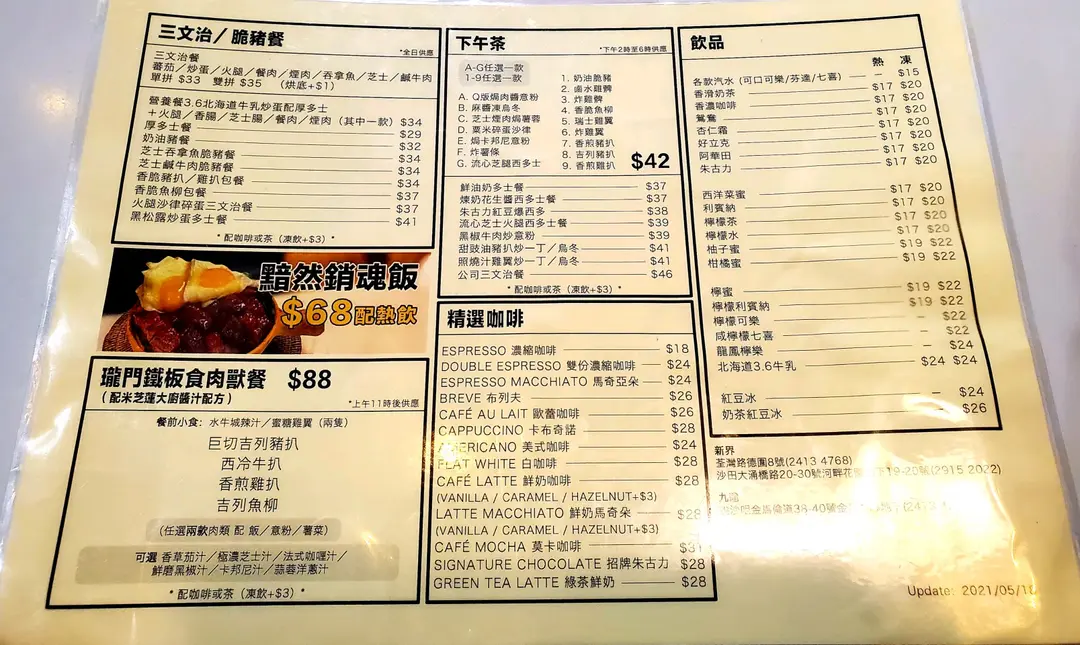 三文治／脆豬餐
*全日供應
三文治餐
蕃茄／炒蛋／火腿／餐肉／煙肉／吞拿魚／芝士／鹹牛肉
單拼 $33 雙拼 $35 （烘底+$1）
營養餐3.6北海道牛乳炒蛋配厚多士
＋火腿／香腸／芝士腸／餐肉／煙肉（其中一款） $34
厚多士餐 $29
奶油豬餐 $32
芝士吞拿魚脆豬餐 $34
芝士鹹牛肉脆豬餐 $34
香脆豬扒／雞扒包餐 $34
香脆魚柳包餐 $37
火腿沙律碎蛋三文治餐 $37
黑松露炒蛋多士餐 $41
* 配咖啡或茶（凍飲+$3） *
黯然銷魂飯
$68配熱飲
瓏門鐵板食肉獸餐 $88
（配米芝蓮大廚醬汁配方）
*上午11時後供應
餐前小食：水牛城辣汁／蜜糖雞翼（兩隻）
巨切吉列豬扒
西冷牛扒
香煎雞扒
吉列魚柳
（任選兩款肉類 配 飯／意粉／薯菜）
可選 香草茄汁／極濃芝士汁／法式咖喱汁／
鮮磨黑椒汁／卡邦尼汁／蒜蓉洋蔥汁
* 配咖啡或茶（凍飲+$3） *
下午茶
*下午2時至6時供應
A-G任選一款
1-9任選一款
A. Q版焗肉醬意粉
B. 麻醬凍烏冬
C. 芝士煙肉焗薯蓉
D. 粟米碎蛋沙律
E. 焗卡邦尼意粉
F. 炸薯條
G. 流心芝腿西多士
1. 奶油脆豬
2. 鹵水雞髀
3. 炸雞髀
4. 香脆魚柳
5. 瑞士雞翼
6. 炸雞翼
7. 香煎豬扒
8. 吉列豬扒
9. 香煎雞扒
$42
鮮油奶多士餐 $37
煉奶花生醬西多士餐 $37
朱古力紅豆爆西多 $38
流心芝士火腿西多士餐 $39
黑椒牛肉炒意粉 $39
甜豉油豬扒炒一丁／烏冬 $41
照燒汁雞翼炒一丁／烏冬 $41
公司三文治餐 $46
* 配咖啡或茶（凍飲+$3） *
精選咖啡
ESPRESSO 濃縮咖啡 $18
DOUBLE ESPRESSO 雙份濃縮咖啡 $24
ESPRESSO MACCHIATO 馬奇亞朵 $24
BREVE 布列夫 $26
CAFÉ AU LAIT 歐蕾咖啡 $26
CAPPUCCINO 卡布奇諾 $28
AMERICANO 美式咖啡 $24
FLAT WHITE 白咖啡 $28
CAFÉ LATTE 鮮奶咖啡 $28
(VANILLA / CARAMEL / HAZELNUT+$3)
LATTE MACCHIATO 鮮奶馬奇朵 $28
(VANILLA / CARAMEL / HAZELNUT+$3)
CAFÉ MOCHA 莫卡咖啡 $31
SIGNATURE CHOCOLATE 招牌朱古力 $28
GREEN TEA LATTE 綠茶鮮奶 $28
飲品
熱 凍
各款汽水 (可口可樂/芬達/七喜) – $15
香滑奶茶 $17 $20
香濃咖啡 $17 $20
鴛鴦 $17 $20
杏仁霜 $17 $20
好立克 $17 $20
阿華田 $17 $20
朱古力 $17 $20
西洋菜蜜 $17 $20
利賓納 $17 $20
檸檬茶 $17 $20
檸檬水 $17 $20
柚子蜜 $19 $22
柑橘蜜 $19 $22
檸蜜 $19 $22
檸檬利賓納 $19 $22
檸檬可樂 – $22
咸檸檬七喜 – $22
龍鳳檸樂 – $24
北海道3.6牛乳 $24 $24
紅豆冰 – $24
奶茶紅豆冰 – $26
新界
荃灣路德圍8號(2413 4768)
沙田大涌橋路20-30號河畔花 下19-20號(2915 2022)
九龍
38-40號
Update: 2021/05/18